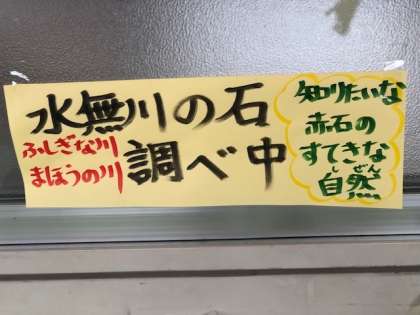 水無川の石
調べ中
ふしぎな川
まほうの川
知りたいな
赤石の
すてきな
しぜん
自然